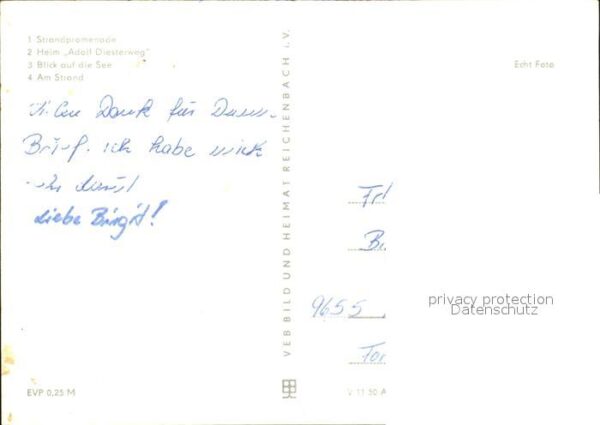 1 Strandpromenade
2 Heim „Adolf Diesterweg"
3 Blick auf die See
4 Am Strand
Echt Foto
Dank für
Brief. ich habe mich
Liebe Birgit!
VEB BILD UND HEIMAT REICHENBACH i.V.
9655
privacy protection
Datenschutz
EVP 0,25 M
V 11 50 A